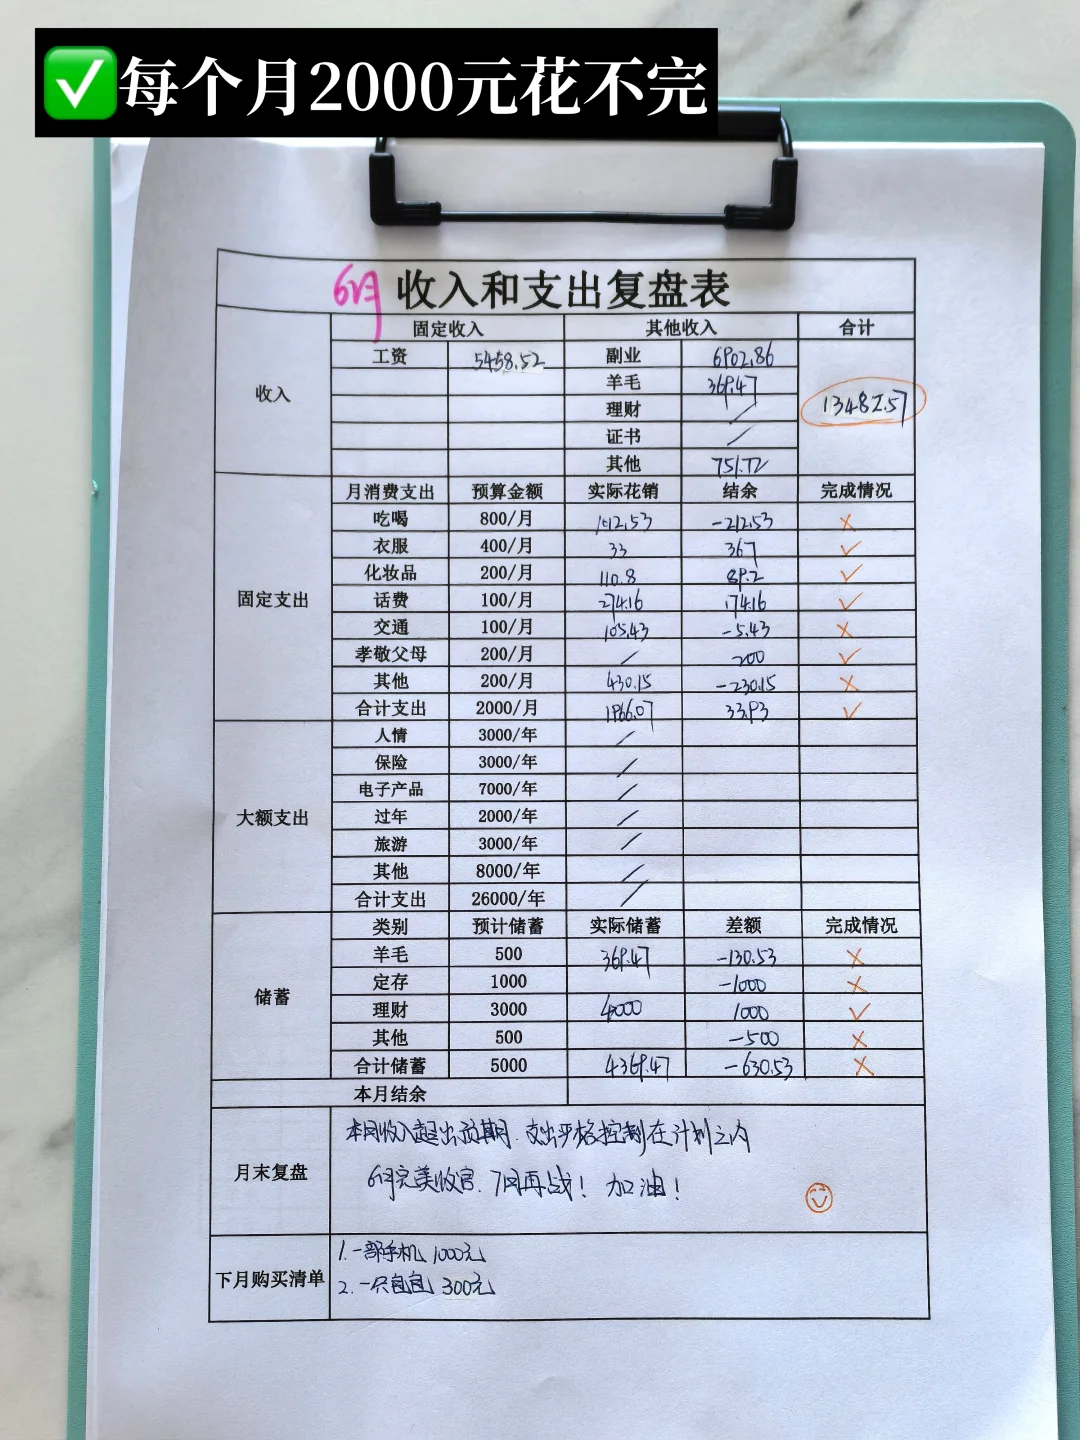 ✅每个月2000元花不完
6月 收入和支出复盘表
收入 固定收入 其他收入 合计
工资 5458.52 副业 6902.86 13482.57
羊毛 369.47
理财 /
证书 /
其他 751.72
固定支出 月消费支出 预算金额 实际花销 结余 完成情况
吃喝 800/月 1012.53 -212.53 ×
衣服 400/月 33 367 ✓
化妆品 200/月 110.8 89.2 ✓
话费 100/月 274.16 174.16 ✓
交通 100/月 105.43 -5.43 ×
孝敬父母 200/月 / 200 ✓
其他 200/月 430.15 -230.15 ×
合计支出 2000/月 1966.07 33.93 ✓
大额支出 人情 3000/年 /
保险 3000/年 /
电子产品 7000/年 /
过年 2000/年 /
旅游 3000/年 /
其他 8000/年 /
合计支出 26000/年 /
储蓄 类别 预计储蓄 实际储蓄 差额 完成情况
羊毛 500 369.47 -130.53 ×
定存 1000 -1000 ×
理财 3000 4000 1000 ✓
其他 500 -500 ×
合计储蓄 5000 4369.47 -630.53 ×
本月结余
月末复盘 本月收入超出预期，支出严格控制在计划之内
6月完美收官，7月再战！加油！
下月购买清单 1. 一部手机 1000元
2. 一只包包 300元